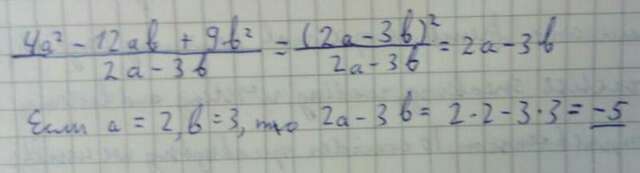 (4a² - 12ab + 9b²)/(2a - 3b) = (2a - 3b)²/(2a - 3b) = 2a - 3b
Если a = 2, b = 3, то 2a - 3b = 2·2 - 3·3 = -5